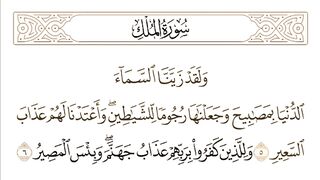 سُورَةُ الْمُلْكِ
وَلَقَدْ زَيَّنَّا السَّمَآءَ
الدُّنْيَا بِمَصَٰبِيحَ وَجَعَلْنَٰهَا رُجُومًا لِّلشَّيَٰطِينِ ۖ وَأَعْتَدْنَا لَهُمْ عَذَابَ
السَّعِيرِ ٥ وَلِلَّذِينَ كَفَرُوا۟ بِرَبِّهِمْ عَذَابُ جَهَنَّمَ ۖ وَبِئْسَ الْمَصِيرُ ٦